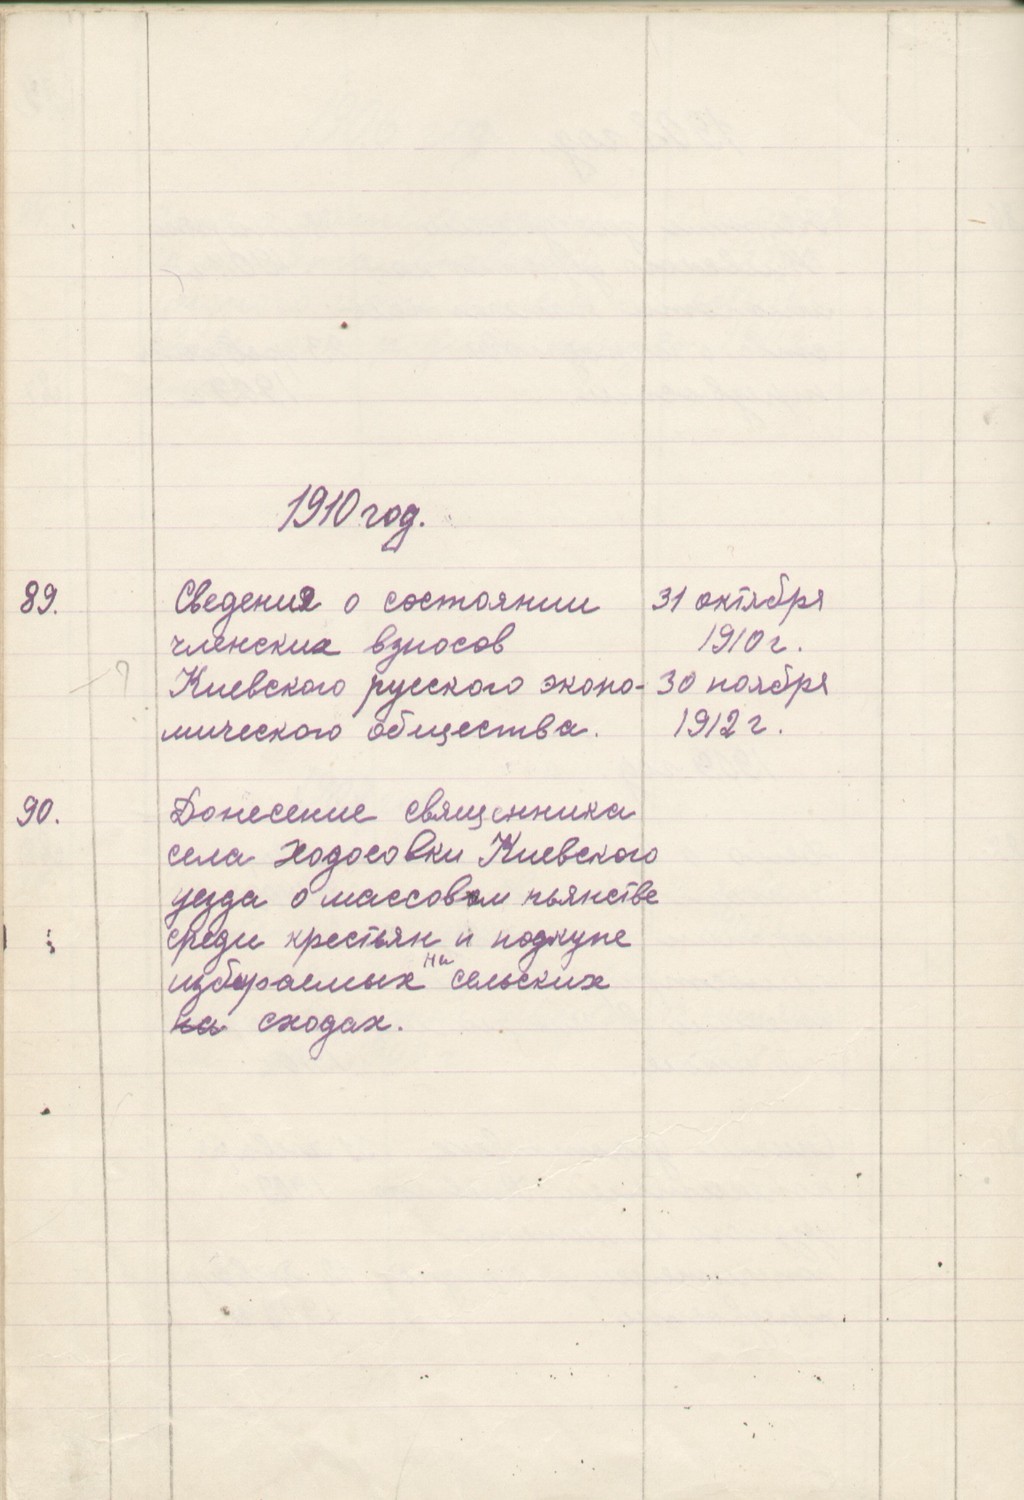 1910 год.
89. Сведения о состоянии 31 октября
членских взносов 1910 г.
Киевского русского эконо- 30 ноября
мического общества. 1912 г.
90. Донесение священника
села Ходосовки Киевского
уезда о массовом пьянстве
среди крестьян и подкупе
избираемых на сельских
на сходах.